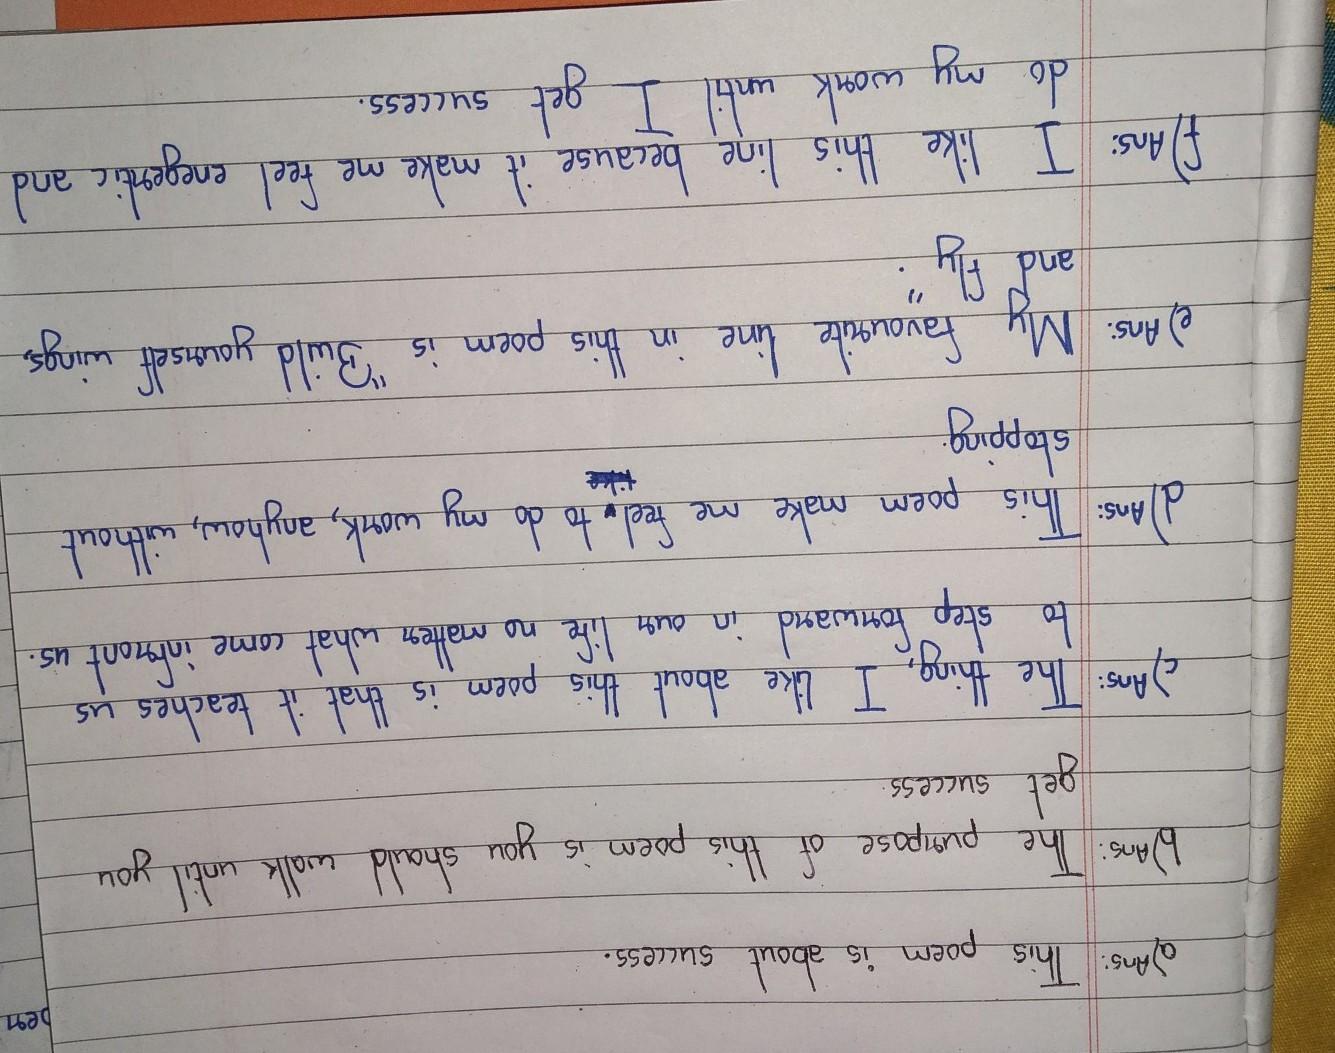 a) Ans: This poem is about success.
b) Ans: The purpose of this poem is you should walk until you
get success.
c) Ans: The thing, I like about this poem is that it teaches us
to step forward in our life no matter what come infront us.
d) Ans: This poem make me feel to do my work, anyhow, without
stopping.
e) Ans: My favourite line in this poem is "Build yourself wings,
and fly".
f) Ans: I like this line because it make me feel enegertic and
do my work until I get success.